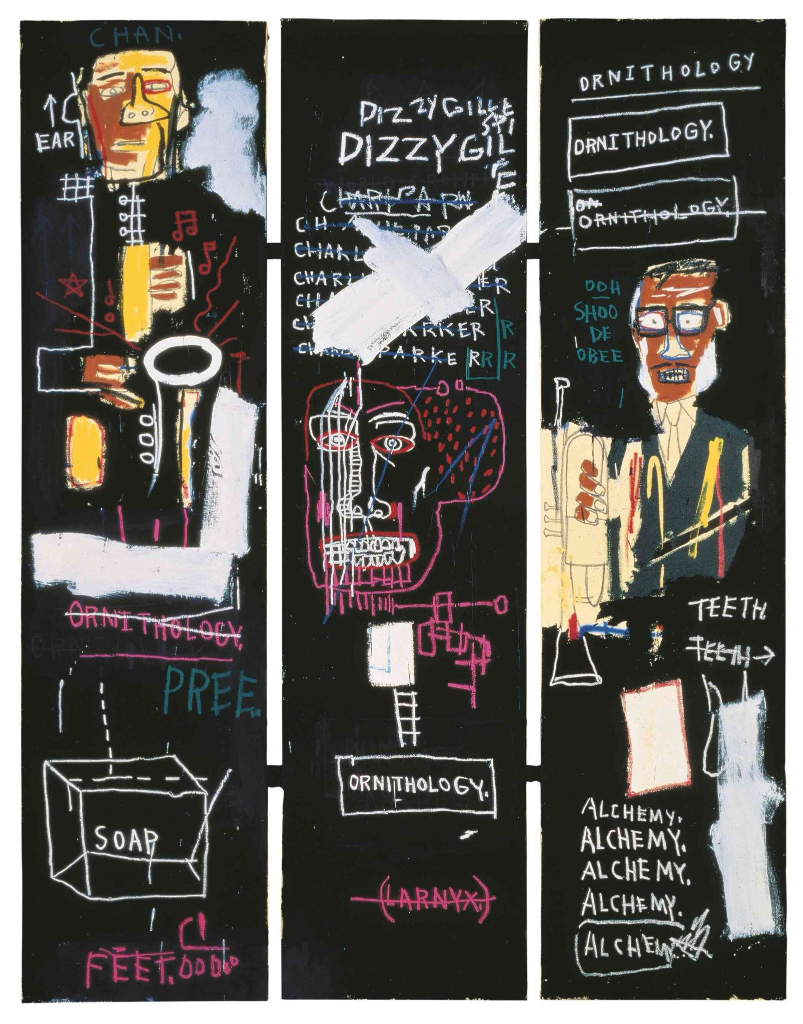 CHAN.
EAR
ORNITHOLOGY.
PREE.
SOAP
FEET.
DIZZYGILLE
SPI
DIZZYGIL
E
CHARL
CHARL
CHARL
ER
ER
RKER R
PARKERR R
ORNITHOLOGY.
(LARNYX.)
ORNITHOLOGY
ORNITHOLOGY.
ORNITHOLOGY.
OOH
SHOO
DE
OBEE
TEETH
TEETH
ALCHEMY.
ALCHEMY.
ALCHEMY.
ALCHEMY.
ALCHEM